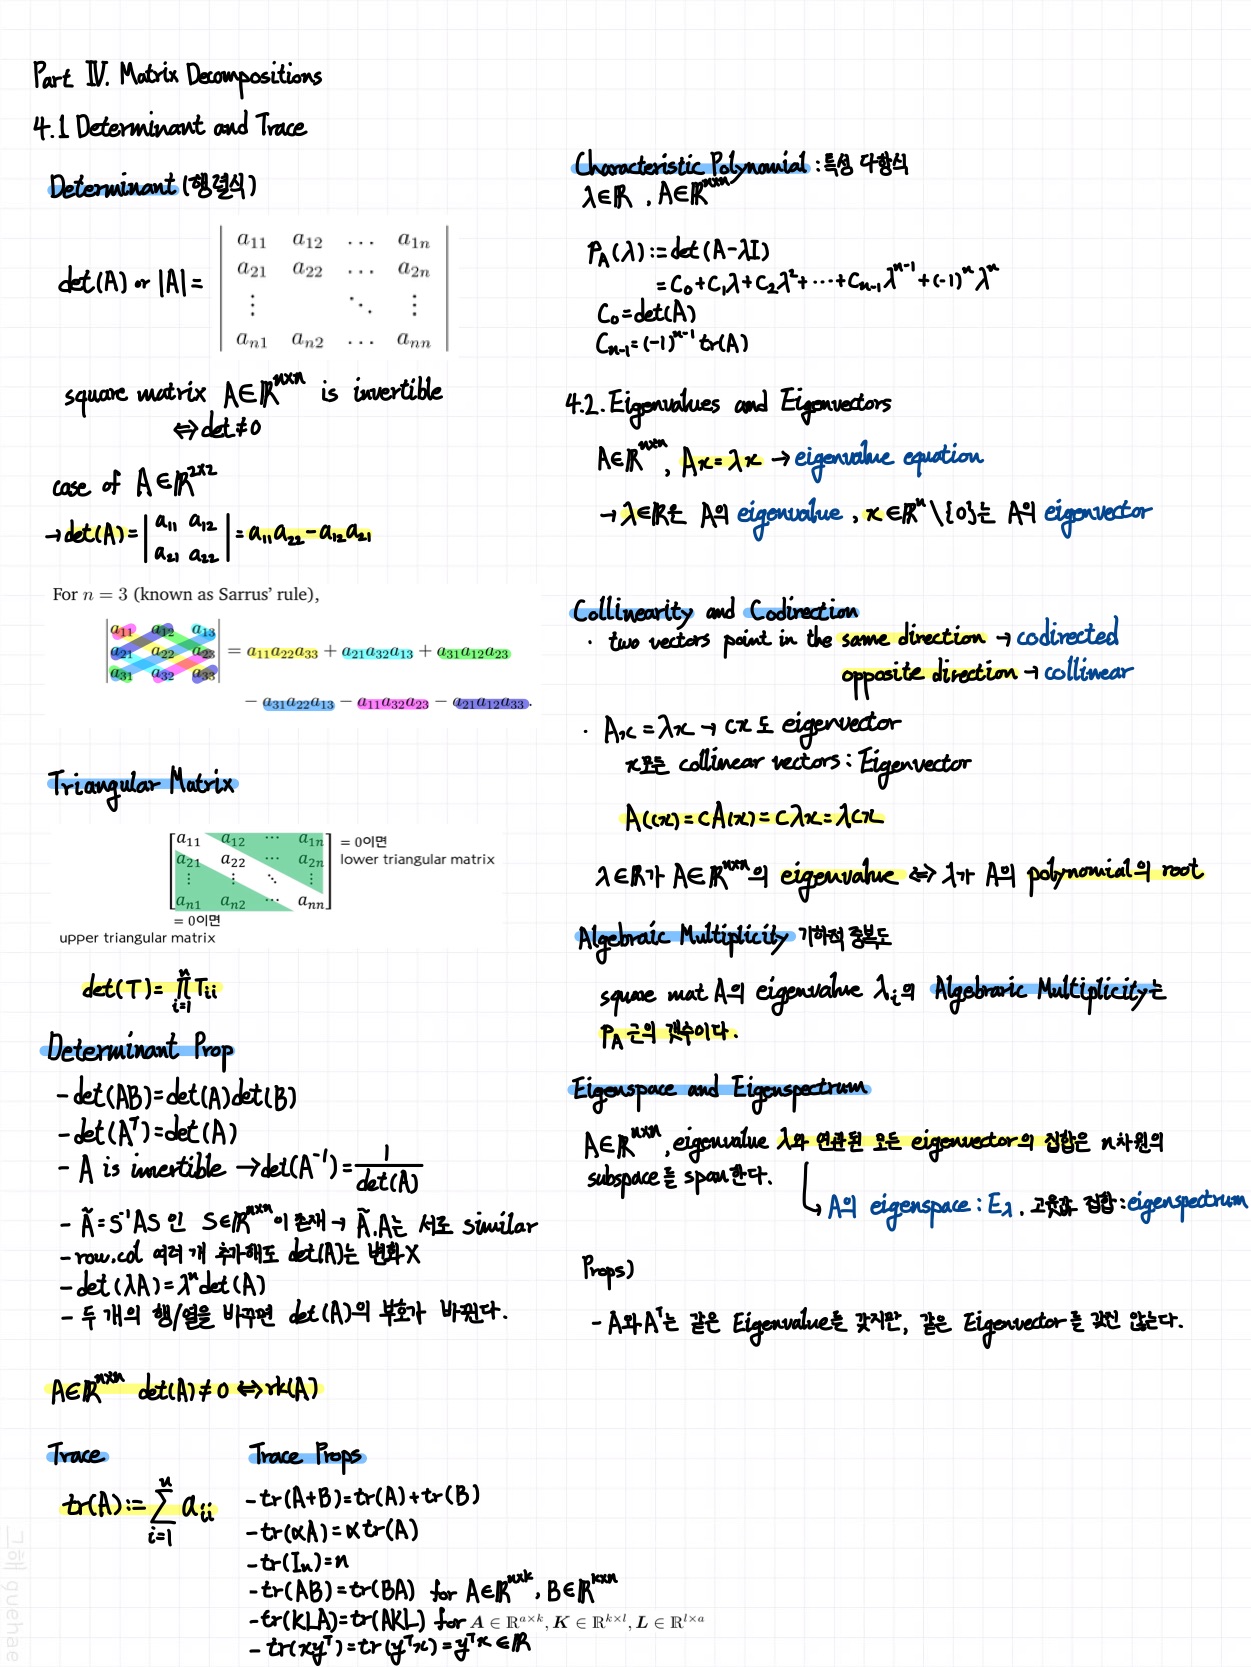 Part Ⅳ. Matrix Decompositions
4.1 Determinant and Trace
Determinant (행렬식)
det(A) or |A| =
a11 a12 ... a1n
a21 a22 ... a2n
⋮ ⋱ ⋮
an1 an2 ... ann
square matrix A∈ℝⁿˣⁿ is invertible
⇔ det≠0
case of A∈ℝ²ˣ²
→ det(A) = | a11 a12 | = a11a22 - a12a21
a21 a22
For n = 3 (known as Sarrus' rule),
a11 a12 a13
a21 a22 a23 = a11a22a33 + a21a32a13 + a31a12a23
a31 a32 a33
− a31a22a13 − a11a32a23 − a21a12a33.
Triangular Matrix
a11 a12 ⋯ a1n = 0이면
a21 a22 a2n lower triangular matrix
⋮ ⋮ ⋱ ⋮
an1 an2 ⋯ ann
= 0이면
upper triangular matrix
det(T) = ∏ⁿᵢ₌₁ Tii
Determinant Prop
- det(AB) = det(A)det(B)
- det(Aᵀ) = det(A)
- A is invertible → det(A⁻¹) = 1/det(A)
- Ã = S⁻¹AS 인 S∈ℝⁿˣⁿ이 존재 → Ã, A는 서로 similar
- row.col 여러 개 추가해도 det(A)는 변화 X
- det(λA) = λⁿdet(A)
- 두 개의 행/열을 바꾸면 det(A)의 부호가 바뀐다.
A∈ℝⁿˣⁿ det(A)≠0 ⇔ rk(A)
Trace
tr(A) := ∑ⁿᵢ₌₁ aii
Trace Props
- tr(A+B) = tr(A)+tr(B)
- tr(αA) = αtr(A)
- tr(In) = n
- tr(AB) = tr(BA) for A∈ℝⁿˣᵏ, B∈ℝᵏˣⁿ
- tr(KLA) = tr(AKL) for A ∈ ℝᵃˣᵏ, K ∈ ℝᵏˣˡ, L ∈ ℝˡˣᵃ
- tr(xyᵀ) = tr(yᵀx) = yᵀx ∈ℝ
Characteristic Polynomial : 특성 다항식
λ∈ℝ , A∈ℝⁿˣⁿ
PA(λ) := det(A-λI)
= C0+C1λ+C2λ²+⋯+Cn-1λⁿ⁻¹+(-1)ⁿλⁿ
C0 = det(A)
Cn-1 = (-1)ⁿ⁻¹tr(A)
4.2. Eigenvalues and Eigenvectors
A∈ℝⁿˣⁿ, Ax = λx → eigenvalue equation
→ λ∈ℝ은 A의 eigenvalue , x∈ℝⁿ\{0}는 A의 eigenvector
Collinearity and Codirection
· two vectors point in the same direction → codirected
opposite direction → collinear
· Ax = λx → cx도 eigenvector
x모든 collinear vectors : Eigenvector
A(cx) = cA(x) = cλx = λcx
λ∈ℝ가 A∈ℝⁿˣⁿ의 eigenvalue ⇔ λ가 A의 polynomial의 root
Algebraic Multiplicity 기하적 중복도
square mat A의 eigenvalue λi의 Algebraric Multiplicity는
PA 근의 갯수이다.
Eigenspace and Eigenspectrum
A∈ℝⁿˣⁿ, eigenvalue λ와 연관된 모든 eigenvector의 집합은 n차원의
subspace를 span한다.
↳ A의 eigenspace : Eλ, 고윳값 집합 : eigenspectrum
Props)
- A와 Aᵀ는 같은 Eigenvalue를 갖지만, 같은 Eigenvector를 갖진 않는다.
그해 guehae